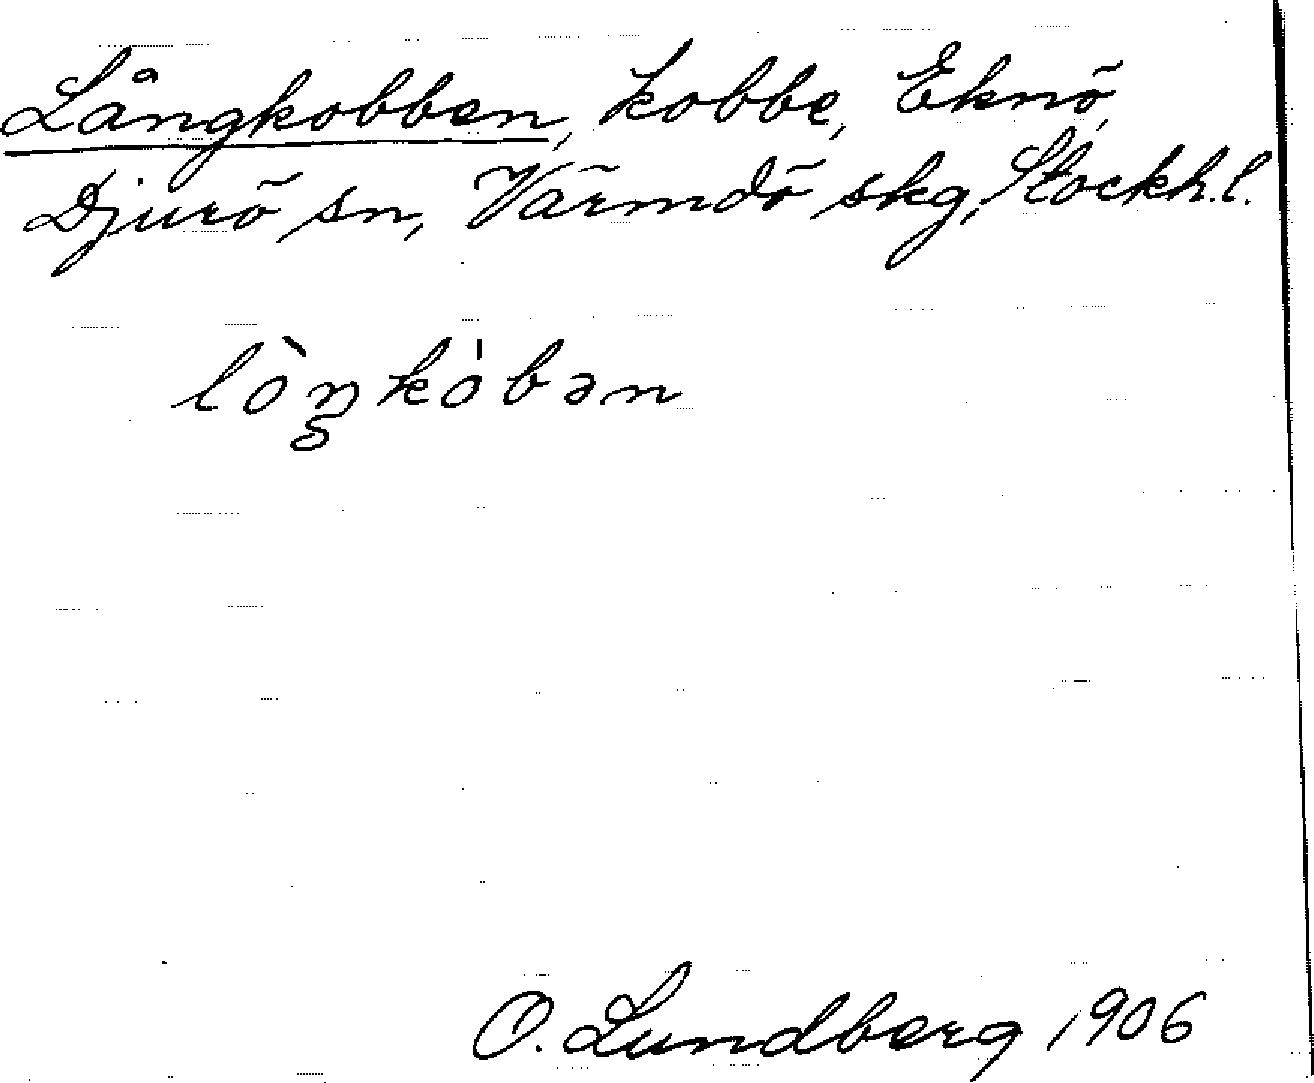 Långkobben, kobbe, Eknö,
Djurö sn, Värmdö skg, Stockh.l.
lòŋkȯbən
O. Lundberg 1906